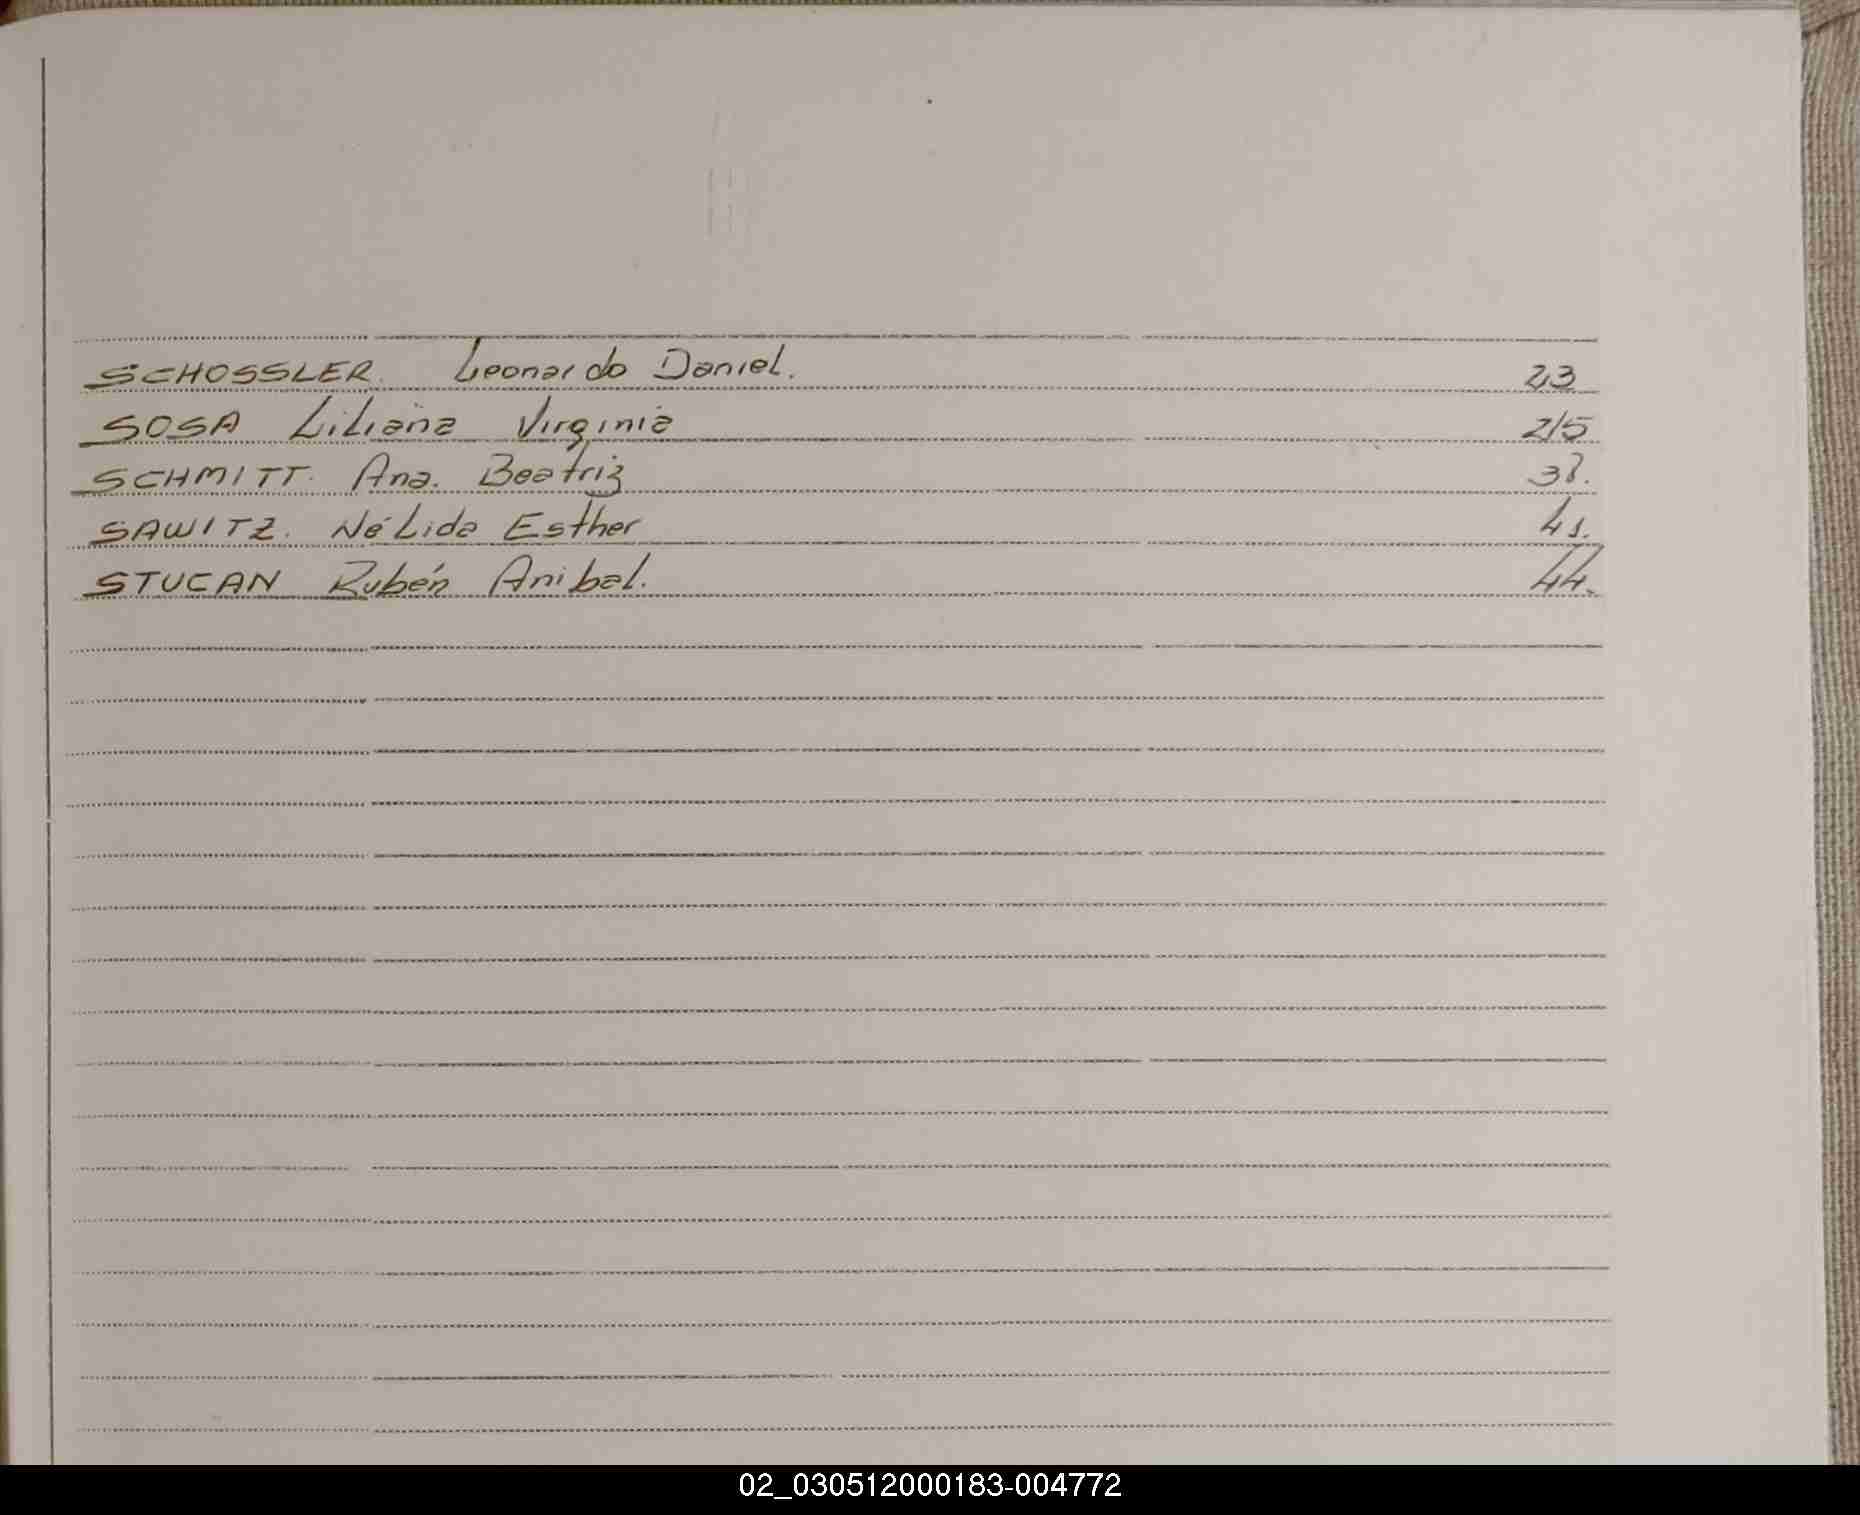 SCHOSSLER. Leonardo Daniel. 23
SOSA Liliana Virginia 25
SCHMITT. Ana. Beatriz 38.
SAWITZ. Nélida Esther 41.
STUCAN Rubén Anibal. 44.
02_030512000183-004772